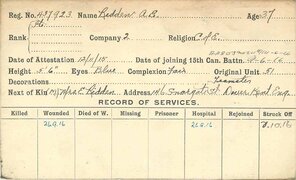 Reg. No. 437923 Name Kidden A.B. Age 37
Rank Pte. Company 2 Religion C of E.
Date of Attestation 12/11/15 Date of joining 15th Can. Battn. 8-6-16
Height 5' 6" Eyes Blue Complexion Fair Original Unit 51
Decorations Teamster
Next of Kin Mrs C. Kidden Address 146 Snargate St Dover Kent Eng.
RECORD OF SERVICES.
Killed Wounded Died of W. Missing Prisoner Hospital Rejoined Struck Off
26.9.16 26.9.16 3.10.16